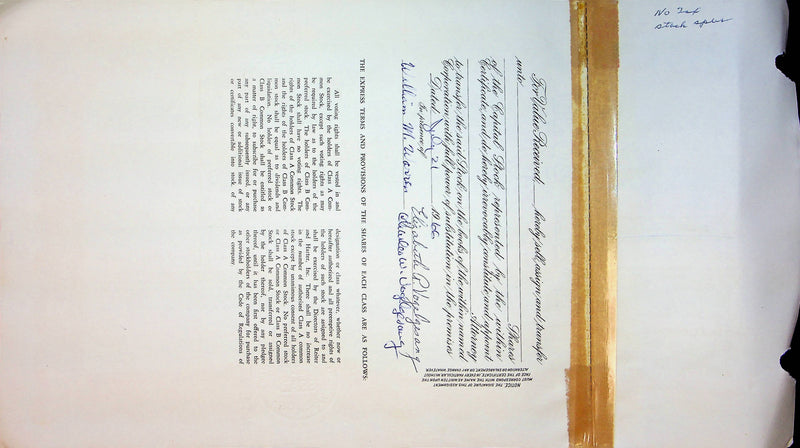 No Tax
stock
For Value Received, hereby sell, assign and transfer
unto
Shares
of the Capital Stock represented by the within
Certificate, and do hereby irrevocably constitute and appoint
Attorney
to transfer the said Stock on the books of the within named
Corporation with full power of substitution in the premises
Dated 21 1966
In presence of
Elizabeth
William M. Warren Charles W.
NOTICE, THE SIGNATURE OF THIS ASSIGNMENT
MUST CORRESPOND WITH THE NAME AS WRITTEN UPON THE
FACE OF THE CERTIFICATE, IN EVERY PARTICULAR, WITHOUT
ALTERATION OR ENLARGEMENT, OR ANY CHANGE WHATEVER.
THE EXPRESS TERMS AND PROVISIONS OF THE SHARES OF EACH CLASS ARE AS FOLLOWS:
All voting rights shall be vested in and
be exercised by the holders of Class A Com-
mon Stock, except such voting rights as may
be required by law as to the holders of the
preferred stock. The holders of Class B Com-
mon Stock shall have no voting rights. The
rights of the holders of Class A Common Stock
and the rights of the holders of Class B Com-
mon stock shall be equal as to dividends and
liquidation. No holder of preferred stock or
Class B Common Stock shall be entitled as
a matter of right, to subscribe for or purchase
any part of any subsequently issued, or any
part of any new or additional issue of stock
or certificates convertible into stock of any
designation or class whatever, whether now or
hereafter authorized and all preemptive rights of
the holders of such stock are assigned to and
shall be exercised by the Directors of Reiter
and Harter, Inc. There shall be no increase
in the number of authorized Class A common
stock except by unanimous consent of all holders
of Class A Common Stock. No preferred stock
or Class A Common Stock or Class B Common
Stock shall be sold, transferred or assigned
by the holder thereof, nor by any pledgee
thereof, until it has been first offered to the
other stockholders of the company for purchase
as provided by the Code of Regulations of
the company